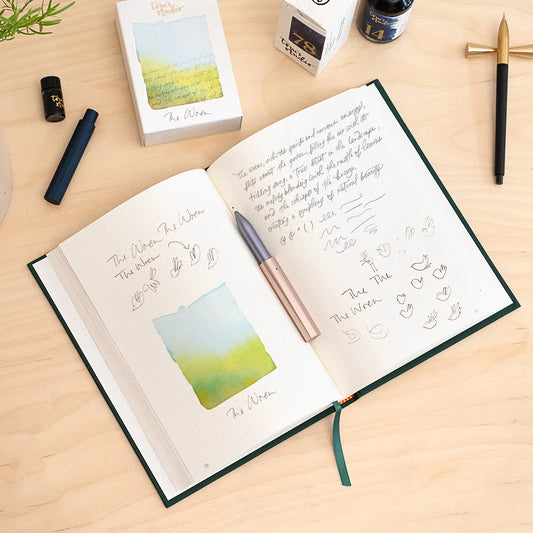 Tom's Studio
The Wren
Tom's Studio
78
14
The Wren The Wren
The Wren
The Wren
78
"The wren, with its quick and nervous energy,
flits about the garden, filling the air with its
trilling song, a true artist in the landscape,
its melody blending with the rustle of leaves
and the whisper of the breeze,
creating a symphony of natural beauty
The The
The Wren